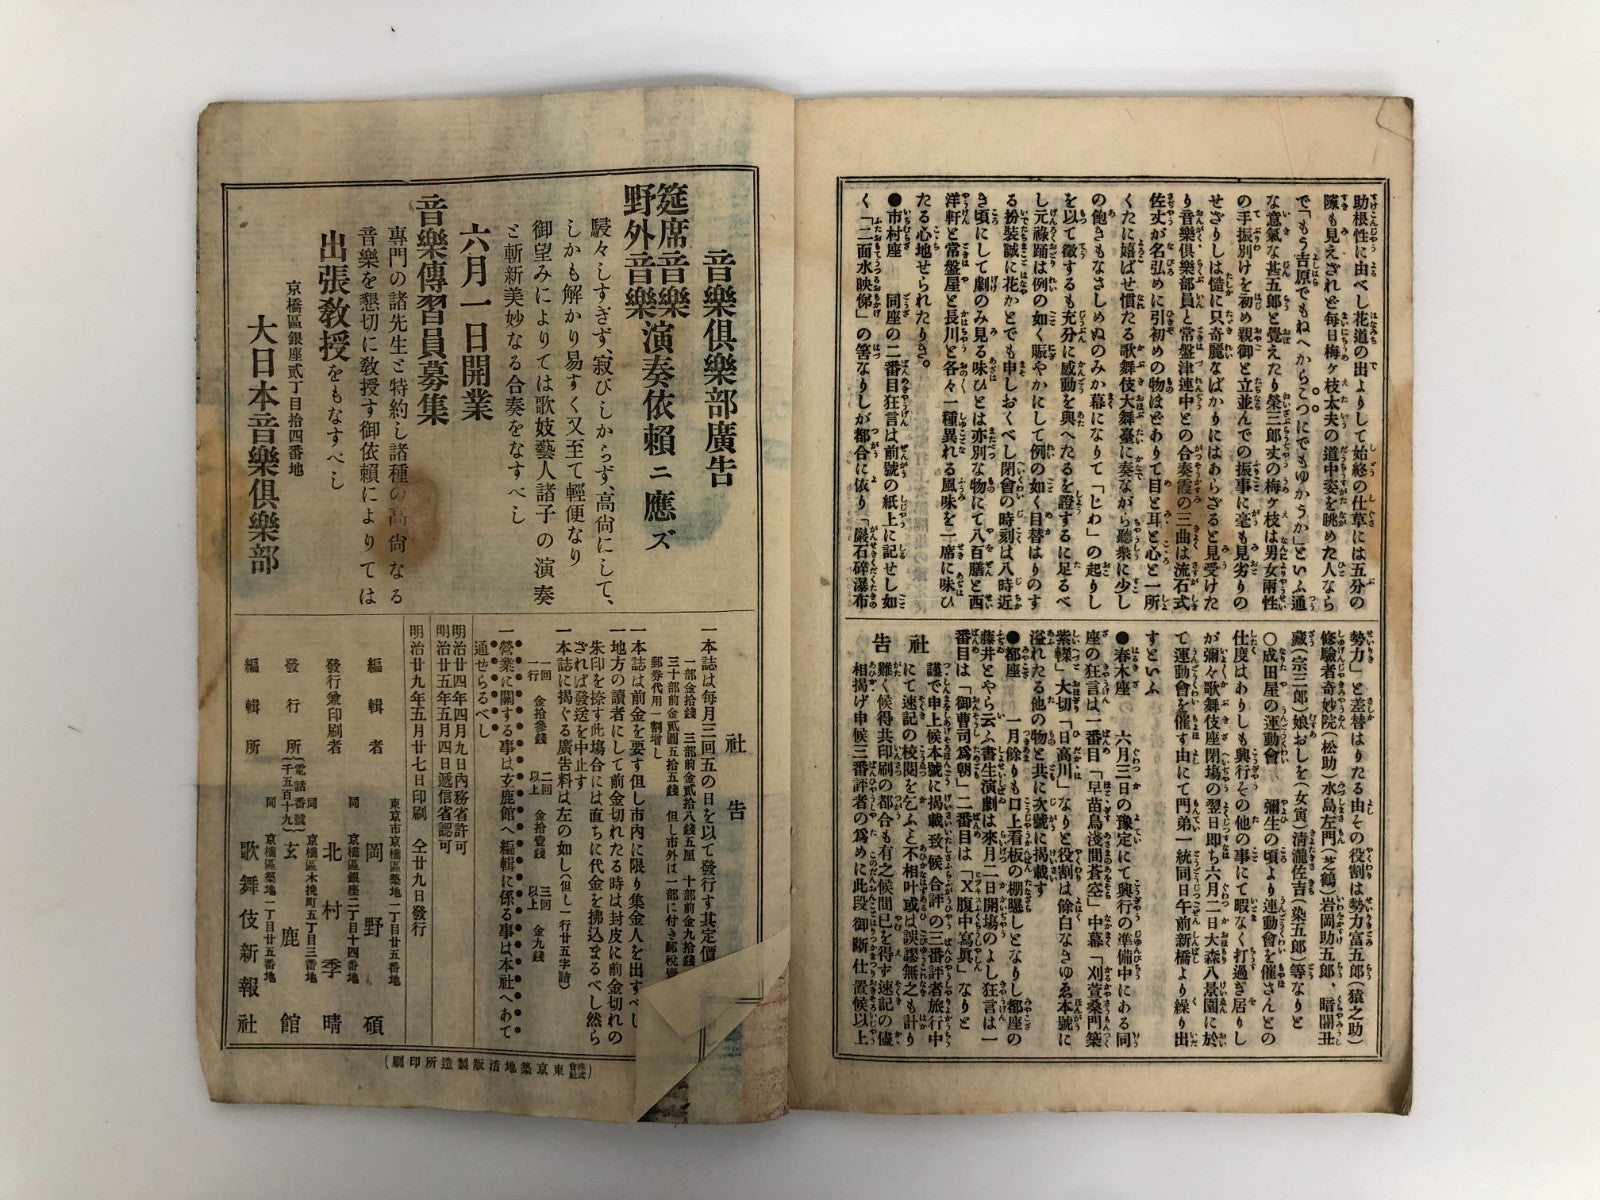 助根性に由べし花道の出よりして始終の仕草には五分の
隙も見えざれど毎日梅ヶ枝太夫の道中姿を眺めた人なら
で「もう吉原でもねへからこつにでもゆかうか」といふ通
な意氣な甚五郎と覺えたり榮三郎丈の梅ヶ枝は男女兩性
の手振別けを初め親御と立並んでの振事に毫も見劣りの
せざりしは慥に只奇麗なばかりにはあらざると見受けた
り音樂俱樂部員と常盤津連中との合奏霞の三曲は流石式
佐丈が名弘めに引初めの物ほどありて目と耳と心と一所
くたに嬉ばせ慣たる歌舞伎大舞臺に奏ながら聽衆に少し
の飽きもなさしめぬのみか幕になりて「じわ」の起りし
を以て徴するも充分に感動を與へたるを證するに足るべ
し元祿踊は例の如く賑やかにして例の如く目替はりのす
る扮裝誠に花かとでも申しおくべし閉會の時刻は八時近
き頃にして劇のみ見る味ひとは亦別な物にて八百膳と西
洋軒と常盤屋と長川と各々一種異れる風味を一席に味ひ
たる心地せられたりき。
●市村座　同座の二番目狂言は前號の紙上に記せし如
く「二面水映俤」の筈なりしが都合に依り「嚴石碎瀑布
勢力」と差替はりたる由その役割は勢力富五郎(猿之助)
修驗者奇妙院(松助)水島左門(芝鶴)岩岡助五郎、暗闇丑
藏(宗三郎)娘おしを(女寅)淸瀧佐吉(染五郎)等なりと
○成田屋の運動會　彌生の頃より運動會を催さんとの
仕度はありしも興行その他の事にて暇なく打過ぎ居りし
が彌々歌舞伎座閉塲の翌日卽ち六月二日大森八景園に於
て運動會を催す由にて門弟一統同日午前新橋より繰り出
すといふ
●春木座　六月三日の豫定にて興行の準備中にある同
座の狂言は一番目「早苗鳥淺間蒼空」中幕「刈萱桑門築
紫𨏍」大切「日高川」なりと役割は餘白なきゆゑ本號に
溢れたる他の物と共に次號に揭載す
●都座　一月餘りも口上看板の棚曝しとなりし都座の
藤井とやら云ふ書生演劇は來月二日開塲のよし狂言は一
番目は「御曹司爲朝」二番目は「X腹中寫眞」なりと
社告
謹で申上候本號に揭載致候合評の三番評者旅行中
にて速記の校閱を乞ふと不相叶或は誤謬無之も計り
難く候得共印刷の都合も有之候間已を得ず速記の儘
相揭げ申候三番評者の爲めに此段御斷仕置候以上
音樂俱樂部廣告
筵席音樂
野外音樂
演奏依賴ニ應ズ
駸々しすぎず、寂びしからず、高尙にして、
しかも解かり易すく又至て輕便なり
御望みによりては歌妓藝人諸子の演奏
と斬新美妙なる合奏をなすべし
六月一日開業
音樂傳習員募集
專門の諸先生と特約し諸種の高尙なる
音樂を懇切に敎授す御依賴によりては
出張敎授をもなすべし
京橋區銀座貳丁目拾四番地
大日本音樂俱樂部
社告
一本誌は每月三回五の日を以て發行す其定價
一部金拾錢　三部前金貳拾八錢五厘　十部前金九拾錢
三十部前金貳圓五拾五錢　但し市外は一部に付き郵稅
郵券代用一割增し
一本誌は前金を要す但し市內に限り集金人を出すべし
一地方の讀者にして前金切れたる時は封皮に前金切れの
朱印を捺す此塲合には直ちに代金を拂込まるべし然ら
ざれば發送を中止す
一本誌に揭ぐる廣告料は左の如し(但し一行廿五字詰)
一回　金拾參錢　二回以上　金拾壹錢　三回以上　金九錢
一行
一營業に關する事は玄鹿館へ編輯に係る事は本社へあて
通せらるべし
明治廿四年四月九日內務省許可
明治廿五年五月四日遞信省認可
明治廿九年五月廿七日印刷　仝廿九日發行
編輯者　東京市京橋區築地一丁目廿五番地　岡野碩
發行兼印刷者　同京橋區銀座二丁目十四番地　北村季晴
發行所　(電話番號千五百十九)　同京橋區木挽町五丁目三番地　玄鹿館
編輯所　同京橋區築地一丁目廿五番地　歌舞伎新報社
(株式會社東京築地活版製造所印刷)